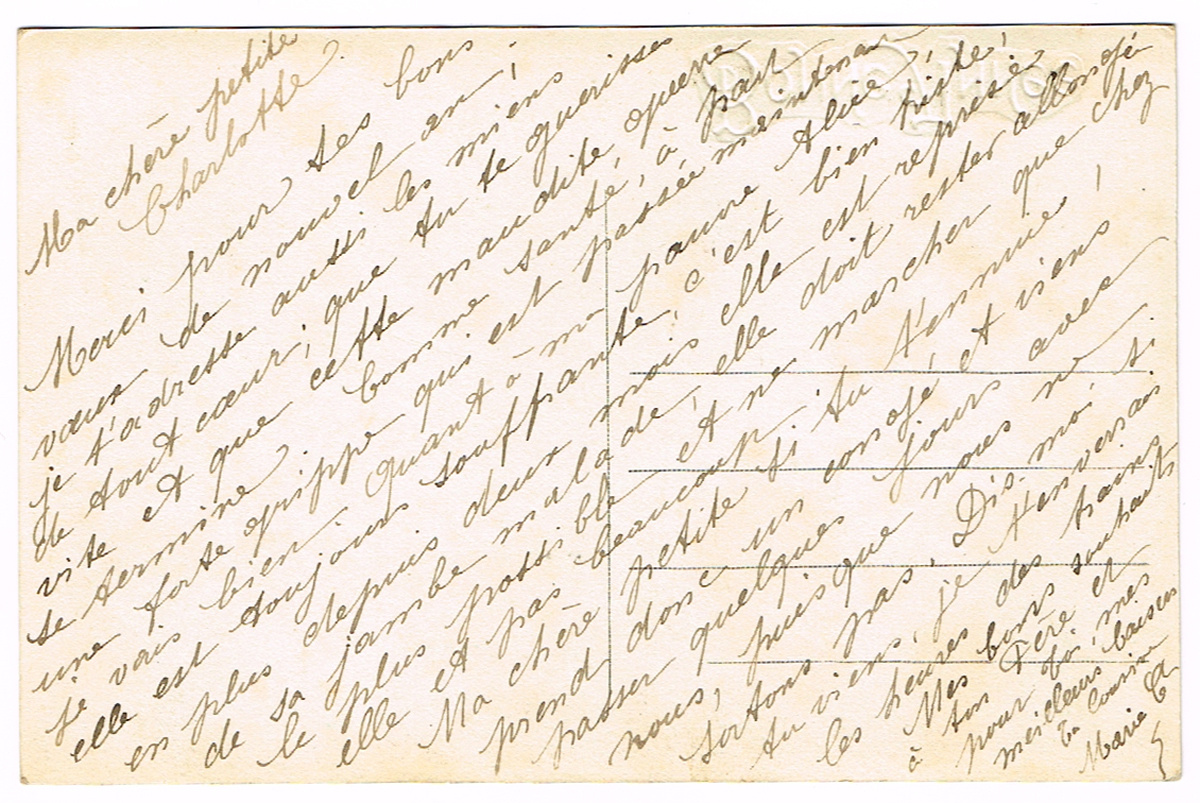 Ma chère petite
Charlotte.
Merci pour tes bons
vœux de nouvel an,
je t'adresse aussi les miens
de tout cœur; que tu te guerisses
vite et que cette maudite guerre
se termine. bonne santé, à part
une forte grippe qui est passée maintenant
je vais bien quant à ma pauvre Alice,
elle est toujours souffrante, c'est bien triste,
en plus depuis deux mois elle est reprise
de sa jambe malade, elle doit rester allongée
le plus possible et ne marcher que chez
elle et pas beaucoup.
Ma chère petite si tu t'ennuie,
prend donc un congé, et viens
passer quelques jours avec
nous, puisque nous ne
sortons pas. Dis-moi si
tu viens, je t'enverrais
les heures des trains
Mes bons souhaits
à ton Père et
pour toi, mes
meilleurs baisers
Ta Cousine
Marie